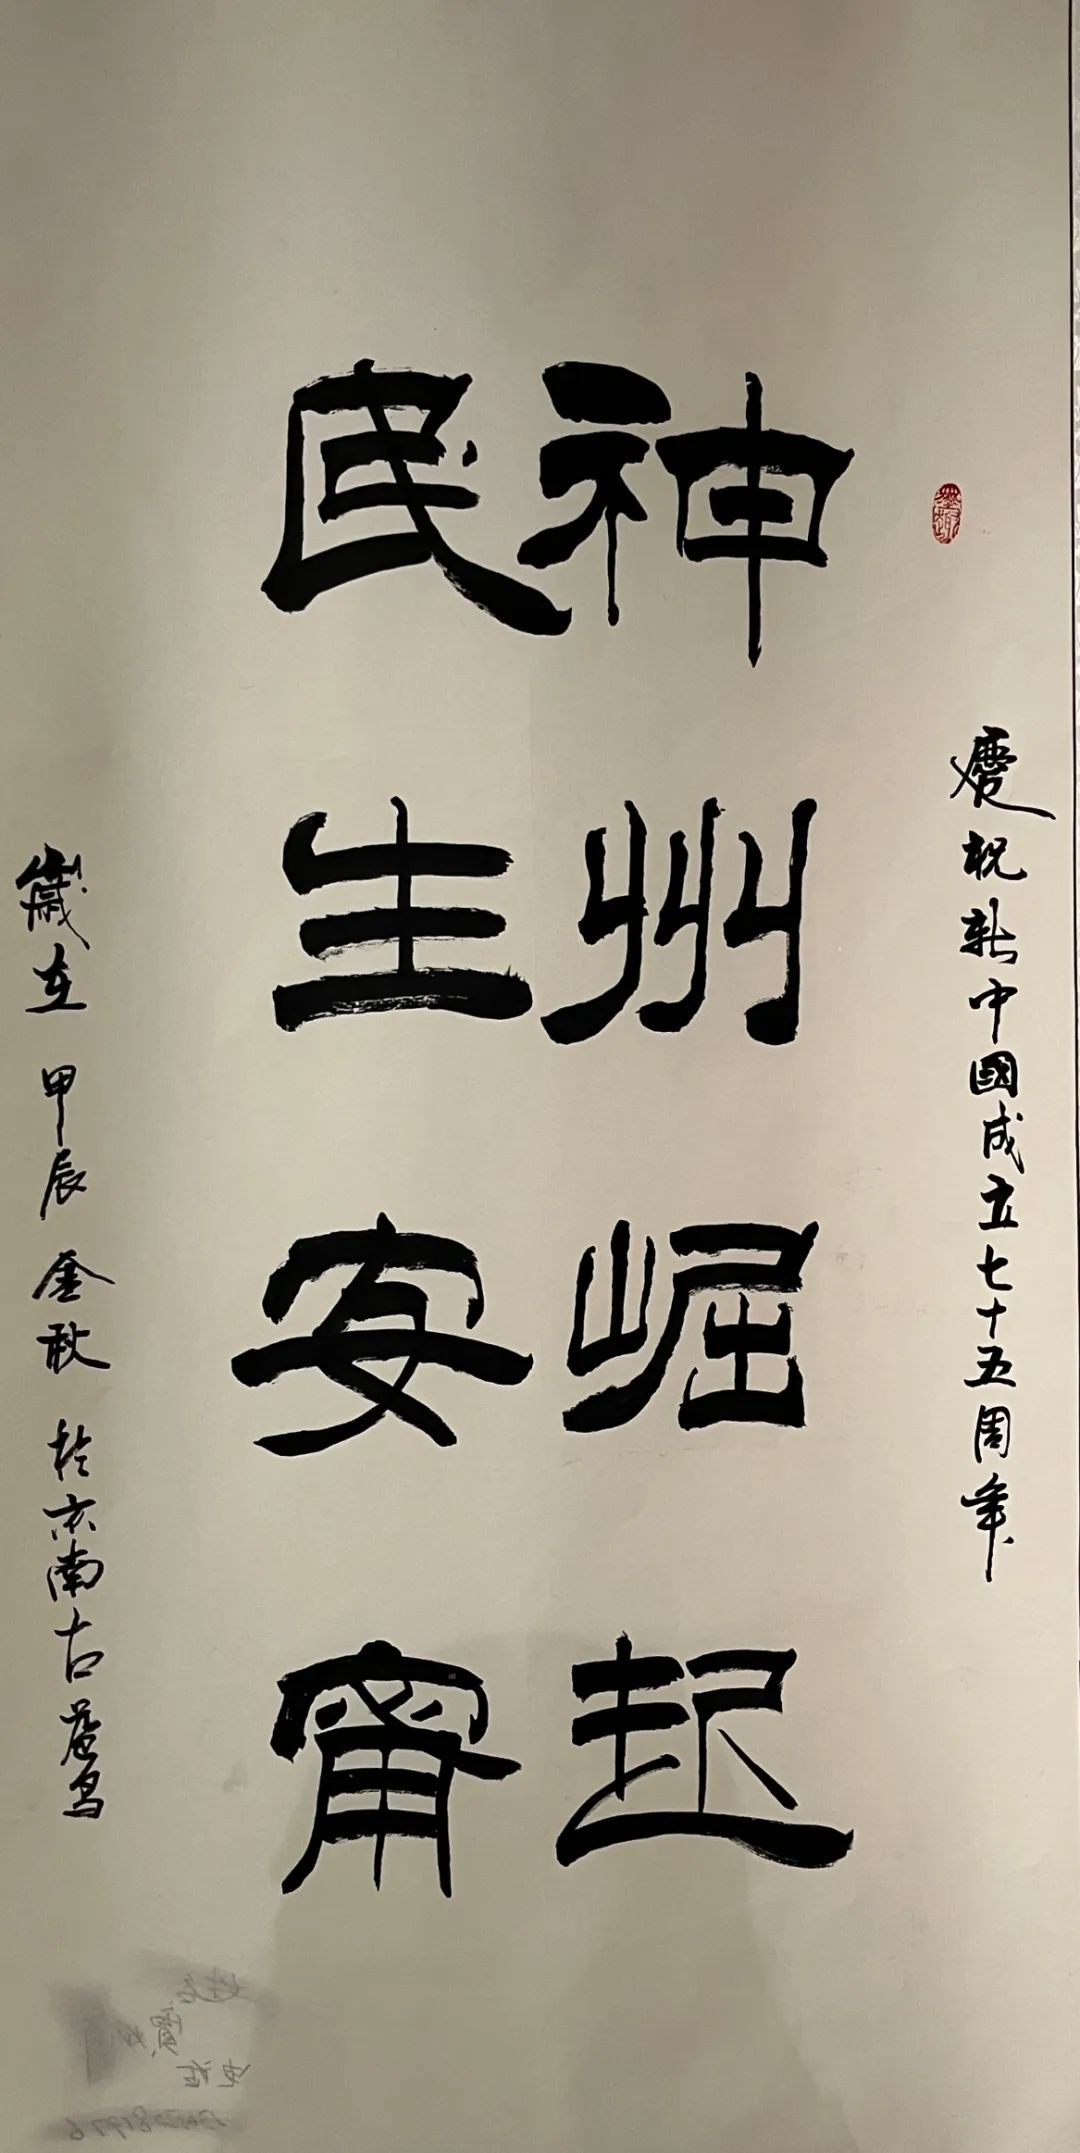 慶祝新中國成立七十五周年
神州崛起
民生安甯
歲在甲辰金秋於京南古菴寫